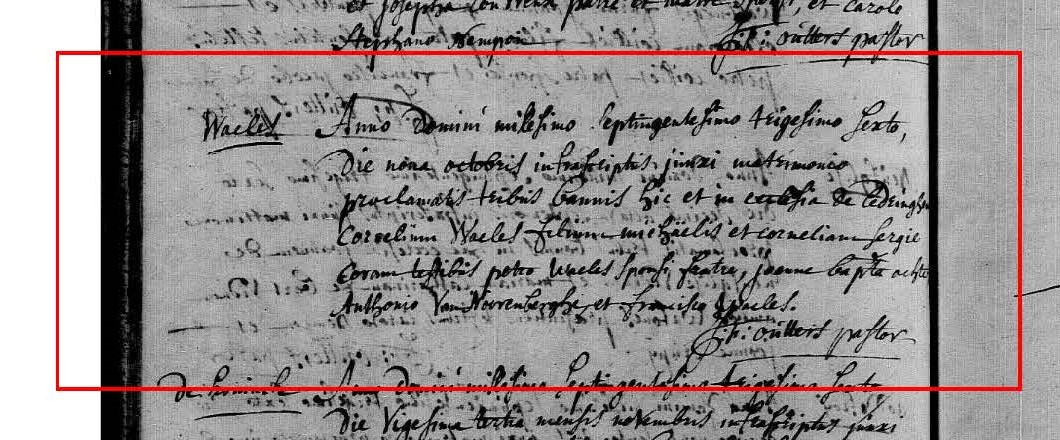 et Josepha patre et matre et carolo
Stephano Kempou J: B: outters pastor
Waeles Anno Domini milesimo septingentesimo trigesimo sexto,
Die nona octobris infrascriptis junxi matrimonio
proclamatis tribus bannis hic et in ecclesia de Ledringhem
Cornelium Waeles filium michaelis et corneliam sergie
Coram testibus petro Waeles sponsi fratre, joanne bapta
Anthonio Van Noorenberghe et francisco Waeles.
J: B: outters pastor
de Anno Domini milesimo septingentesimo trigesimo sexto
Die Vigesima tertia mensis novembris infrascriptus junxi